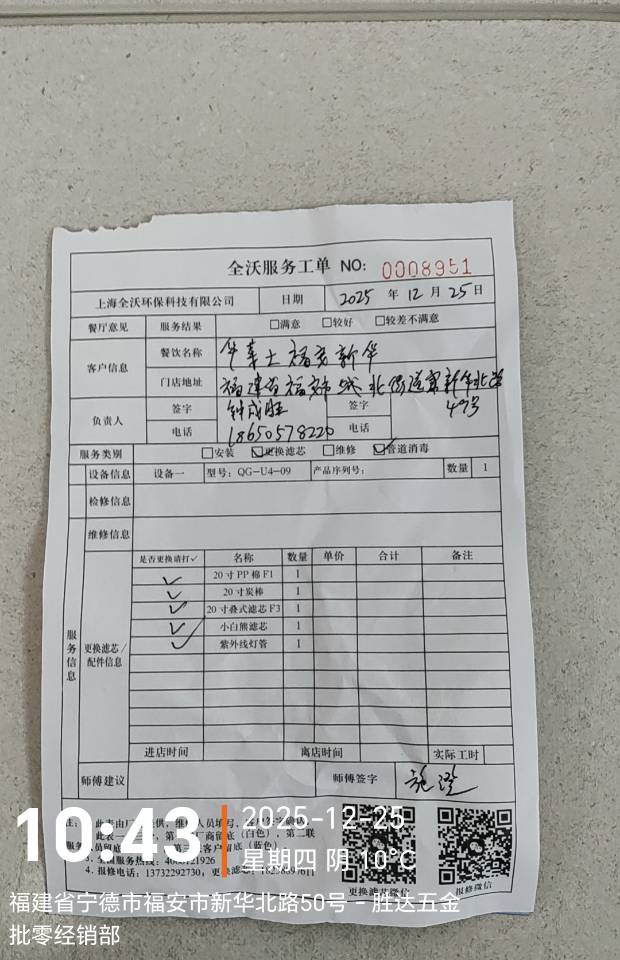 全沃服务工单 NO: 0008951
上海全沃环保科技有限公司 日期 2025 年 12 月 25 日
餐厅意见 服务结果 □满意 □较好 □较差不满意
客户信息 餐饮名称 华莱士福安新华
门店地址 福建省福安市城北街道 新华北路
47号
负责人 签字 钟成胜 签字
电话 18650578220 电话
服务类别 □安装 ☑更换滤芯 □维修 ☑管道消毒
设备信息 设备一 型号: QG-U4-09 产品序列号: 数量 1
检修信息
维修信息
服务信息 更换滤芯/配件信息
是否更换请打✓ 名称 数量 单价 合计 备注
✓ 20寸PP棉F1 1
✓ 20寸炭棒 1
✓ 20寸叠式滤芯F3 1
✓ 小白熊滤芯 1
✓ 紫外线灯管 1
进店时间 离店时间 实际工时
师傅建议 师傅签字
3. 全国服务热线:
4. 报修电话: 13732292730;
更换滤芯微信 报修微信
10:43 2025-12-25
星期四 阴 10°C
福建省宁德市福安市新华北路50号-胜达五金
批零经销部